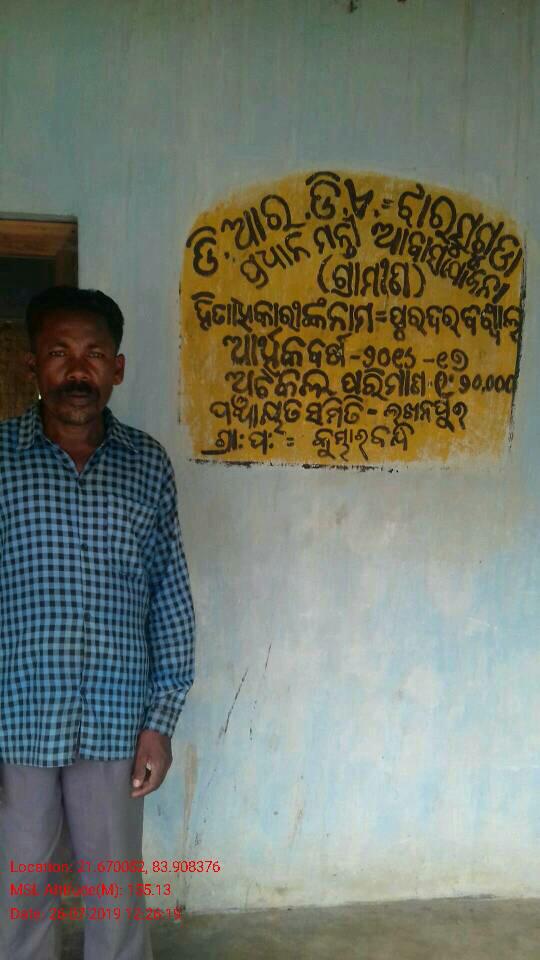 ଡି.ଆର.ଡି.ଏ.=ଝାରସୁଗୁଡା
ପ୍ରଧାନ ମନ୍ତ୍ରୀ ଆବାସ ଯୋଜନା
(ଗ୍ରାମୀଣ)
ହିତାଧିକାରୀଙ୍କ ନାମ=
ଆର୍ଥିକ ବର୍ଷ-୨୦୧୬-୧୭
ଅଟକଳ ପରିମାଣ ୧,୨୦,୦୦୦
ପଞ୍ଚାୟତ ସମିତି-ଲଖନପୁର
ଗ୍ରା: ପ: = କୁମ୍ଭାରବନ୍ଧ
Location: 21.670082, 83.908376
MSL Altitude(M): 135.13
Date: 26-07-2019 12:26:19